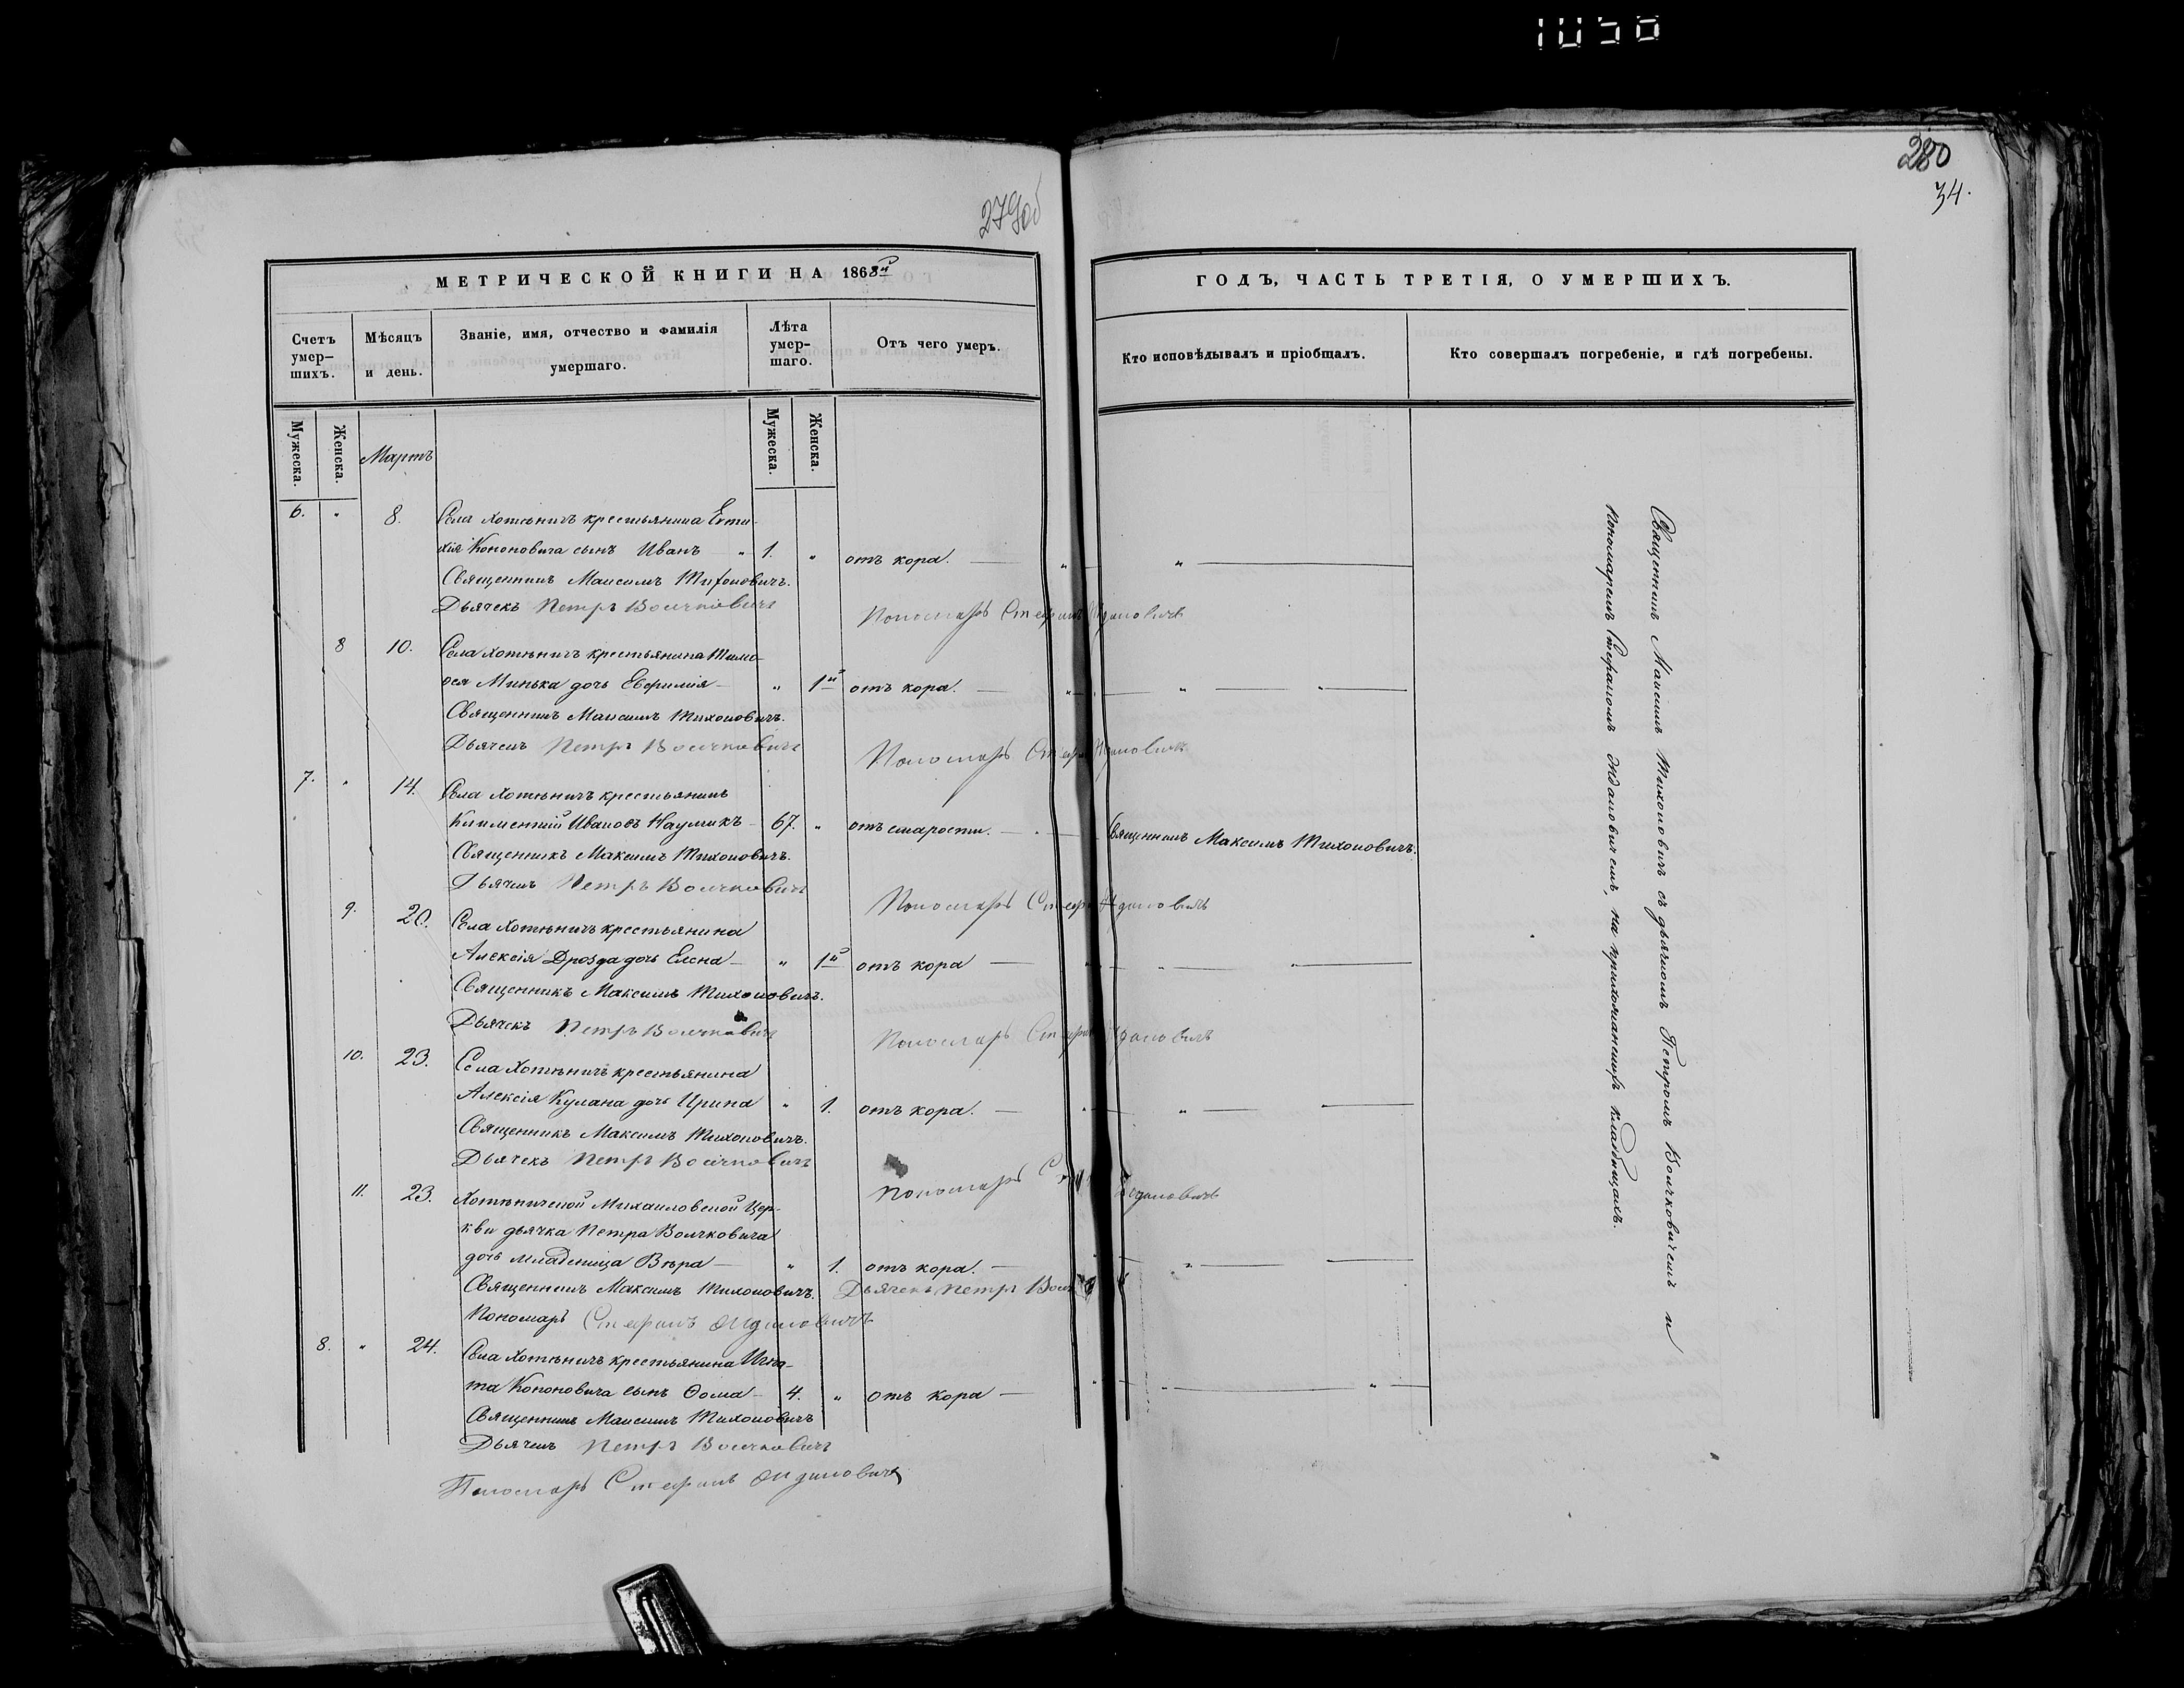 1058
280
34.
279об
МЕТРИЧЕСКОЙ КНИГИ НА 1868й
ГОДЪ, ЧАСТЬ ТРЕТІЯ, О УМЕРШИХЪ.
Счетъ умер-шихъ.
Мѣсяцъ и день.
Званіе, имя, отчество и фамилія умершаго.
Лѣта умер-шаго.
Отъ чего умеръ.
Кто исповѣдывалъ и пріобщалъ.
Кто совершалъ погребеніе, и гдѣ погребены.
Мужеска.
Женска.
Мартъ
Мужеска.
Женска.
6. " 8. Села Хотѣничъ крестьянина Евти-
хія Кононовича сынъ Иванъ — " 1. " отъ кора. — " — " —
Священникъ Максимъ Тихоновичъ.
Дьячекъ Петръ Волчковичъ
Пономарь Стефанъ
8 10. Села Хотѣничъ крестьянина Тимо-
ѳея Минька дочь Евфимія — " 1й отъ кора. — " — " — " —
Священникъ Максимъ Тихоновичъ.
Дьячекъ Петръ Волчковичъ
Пономарь
7. " 14. Села Хотѣничъ крестьянинъ
Климентій Ивановъ Наумчикъ — 67. " отъ старости. — Священникъ Максимъ Тихоновичъ.
Священникъ Максимъ Тихоновичъ.
Дьячекъ Петръ Волчковичъ
Пономарь
9. 20. Села Хотѣничъ крестьянина
Алексія Дрозда дочь Елена — " 1й отъ кора — " — " — " —
Священникъ Максимъ Тихоновичъ.
Дьячекъ Петръ Волчковичъ
Пономарь
10. 23. Села Хотѣничъ крестьянина
Алексія Кулана дочь Ирина " 1. отъ кора. — " — " —
Священникъ Максимъ Тихоновичъ.
Дьячекъ Петръ Волчковичъ
Пономарь
11. 23. Хотѣничской Михаиловской Цер-
кви дьячка Петра Волчковича
дочь младеница Вѣра — " 1. отъ кора. — " —
Священникъ Максимъ Тихоновичъ. Дьячекъ Петръ
Пономарь Стефанъ
8. " 24. Села Хотѣничъ крестьянина Игна-
та Кононовича сынъ Ѳома — 4. " отъ кора — " — " —
Священникъ Максимъ Тихоновичъ
Дьячекъ Петръ Волчковичъ
Пономарь Стефанъ
Священникъ Максимъ Тихоновичъ съ дьячкомъ Петромъ Волчковичемъ и
пономаремъ Стефаномъ на прихожанскихъ кладбищахъ.